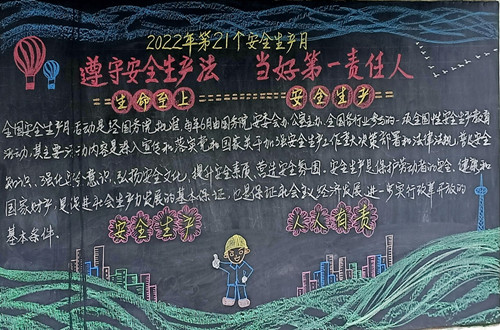 2022年第21个安全生产月
遵守安全生产法 当好第一责任人
生命至上 安全生产
全国安全生产月活动是经国务院批准,每年6月由国务院安委会办公室主办、全国各行业参与的一项全国性安全生产教育
活动,其主要活动内容是深入宣传和落实党和国家关于加强安全生产工作重大决策部署和法律法规,普及安全
知识、强化安全意识、弘扬安全文化、提升安全素质、营造安全氛围。安全生产是保护劳动者的安全、健康和
国家财产,是促进社会生产力发展的基本保证,也是保证社会主义经济发展,进一步实行改革开放的
基本条件.
安全生产 人人有责